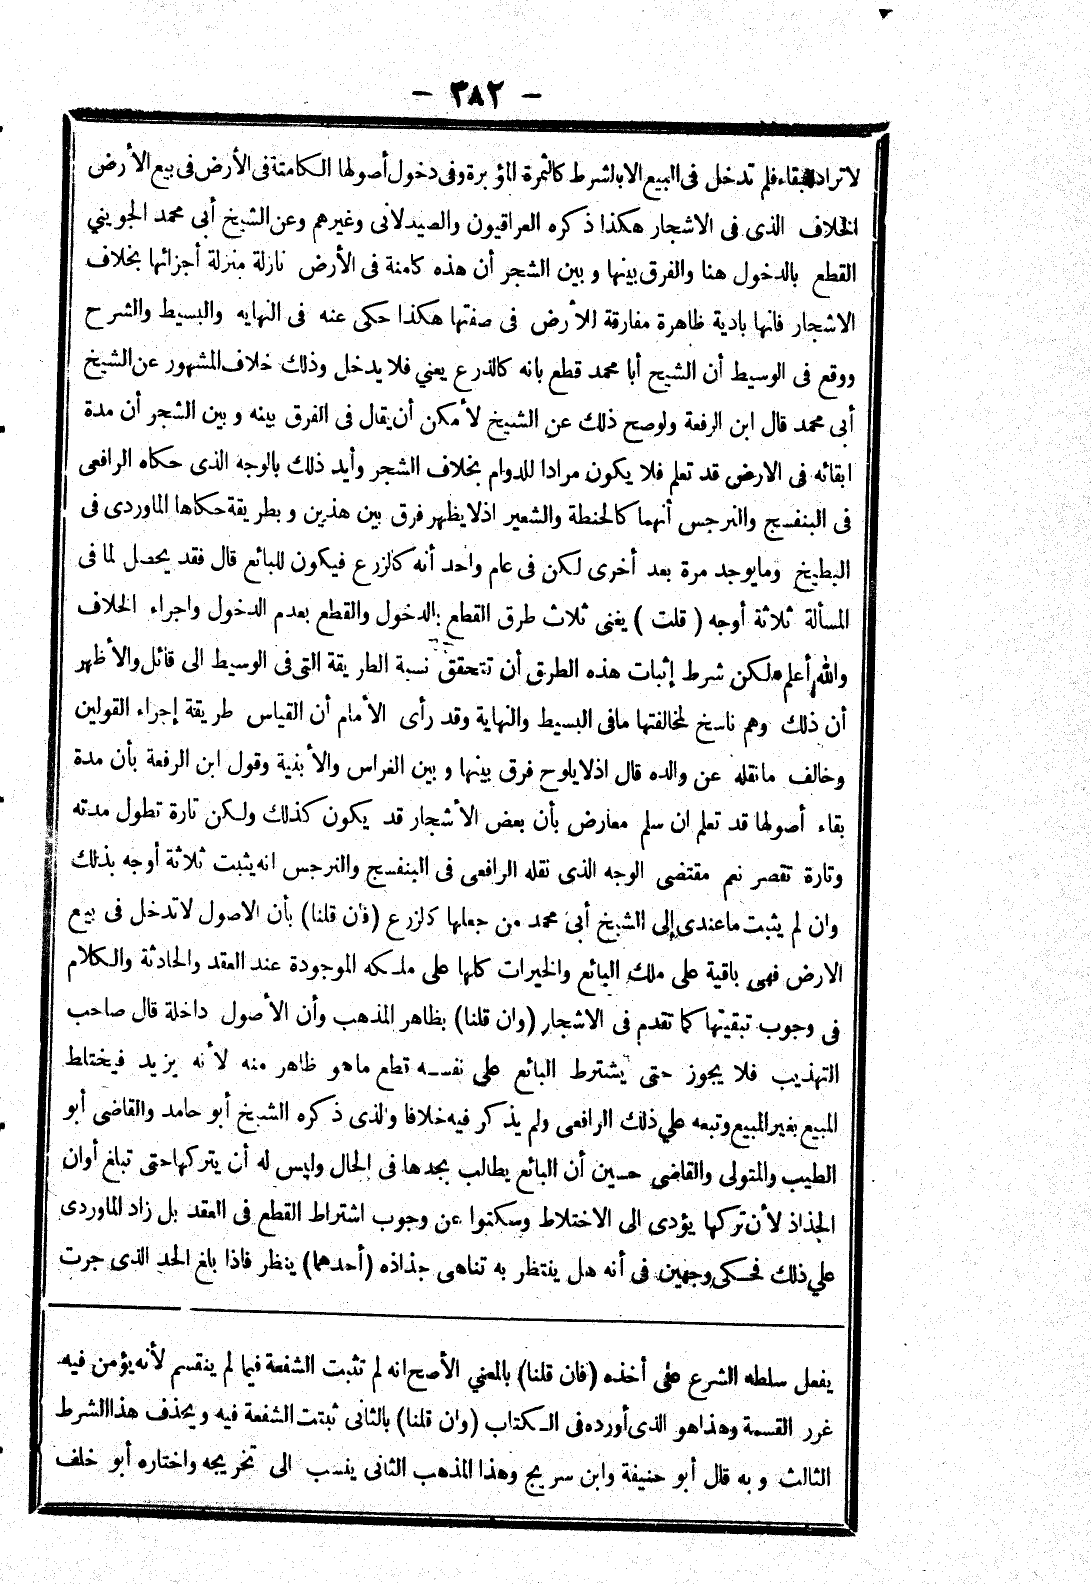 - ٣٨٢ -
لا تراد للبقاء فلم تدخل فى البيع الا بالشرط كالثمرة المؤبرة وفى دخول أصولها الكامنة فى الأرض فى بيع الأرض
الخلاف الذى فى الاشجار هكذا ذكره العراقيون والصيدلانى وغيرهم وعن الشيخ أبى محمد الجويني
القطع بالدخول هنا والفرق بينها و بين الشجر أن هذه كامنة فى الأرض نازلة منزلة أجزائها بخلاف
الاشجار فانها بادية ظاهرة مفارقة للأرض فى صفتها هكذا حكى عنه فى النهايه والبسيط والشرح
ووقع فى الوسيط أن الشيخ أبا محمد قطع بانه كالذرع يعني فلا يدخل وذلك خلاف المشهور عن الشيخ
أبى محمد قال ابن الرفعة ولو صح ذلك عن الشيخ لأمكن أن يقال فى الفرق بينه و بين الشجر أن مدة
ابقائه فى الارض قد تعلم فلا يكون مرادا للدوام بخلاف الشجر وأيد ذلك بالوجه الذى حكاه الرافعى
فى البنفسج والنرجس أنهما كالحنطة والشعير اذلا يظهر فرق بين هذين و بطريقة حكاها الماوردى فى
البطيخ ومايوجد مرة بعد أخرى لكن فى عام واحد أنه كالزرع فيكون للبائع قال فقد يحصل لما فى
المسألة ثلاثة أوجه ( قلت ) يغنى ثلاث طرق القطع بالدخول والقطع بعدم الدخول واجراء الخلاف
والله أعلم * لكن شرط إثبات هذه الطرق أن تتحقق نسبة الطريقة التى فى الوسيط الى قائل والأظهر
أن ذلك وهم ناسخ لمخالفتها مافى البسيط والنهاية وقد رأى الأمام أن القياس طريقة إجراء القولين
وخالف مانقله عن والده قال اذلايلوح فرق بينها و بين الغراس والأبنية وقول ابن الرفعة بأن مدة
بقاء أصولها قد تعلم ان سلم معارض بأن بعض الأشجار قد يكون كذلك ولكن تارة تطول مدته
وتارة تقصر نعم مقتضى الوجه الذى نقله الرافعى فى البنفسج والنرجس انه يثبت ثلاثة أوجه بذلك
وان لم يثبت ماعندى إلى الشيخ أبى محمد من جعلها كالزرع (فان قلنا) بأن الاصول لاتدخل فى بيع
الارض فهى باقية على ملك البائع والخيرات كلها على ملكه الموجودة عند العقد والحادثة والكلام
فى وجوب تبقيتها كما تقدم فى الاشجار (وان قلنا) بظاهر المذهب وأن الأصول داخلة قال صاحب
التهذيب فلا يجوز حتى يشترط البائع على نفسه قطع ماهو ظاهر منه لأنه يزيد فيختلط
المبيع بغير المبيع وتبعه علي ذلك الرافعى ولم يذكر فيه خلافا والذى ذكره الشيخ أبو حامد والقاضى أبو
الطيب والمتولى والقاضى حسين أن البائع يطالب بجدها فى الحال وليس له أن يتركها حتى تبلغ أوان
الجذاذ لأن تركها يؤدى الى الاختلاط وسكتوا عن وجوب اشتراط القطع فى العقد بل زاد الماوردى
علي ذلك فحكى وجهين فى أنه هل ينتظر به تناهى جذاذه (أحدهما) ينظر فاذا بلغ الحد الذى جرت
يفعل سلطه الشرع على أخذه (فان قلنا) بالمعني الأصح انه لم تثبت الشفعة فيما لم ينقسم لأنه يؤمن فيه
غرر القسمة وهذاهو الذى أورده فى الكتاب (وان قلنا) بالثانى ثبتت الشفعة فيه و يحذف هذا الشرط
الثالث و به قال أبو حنيفة وابن سريج وهذا المذهب الثانى ينسب الى تخريجه واختاره أبو خلف